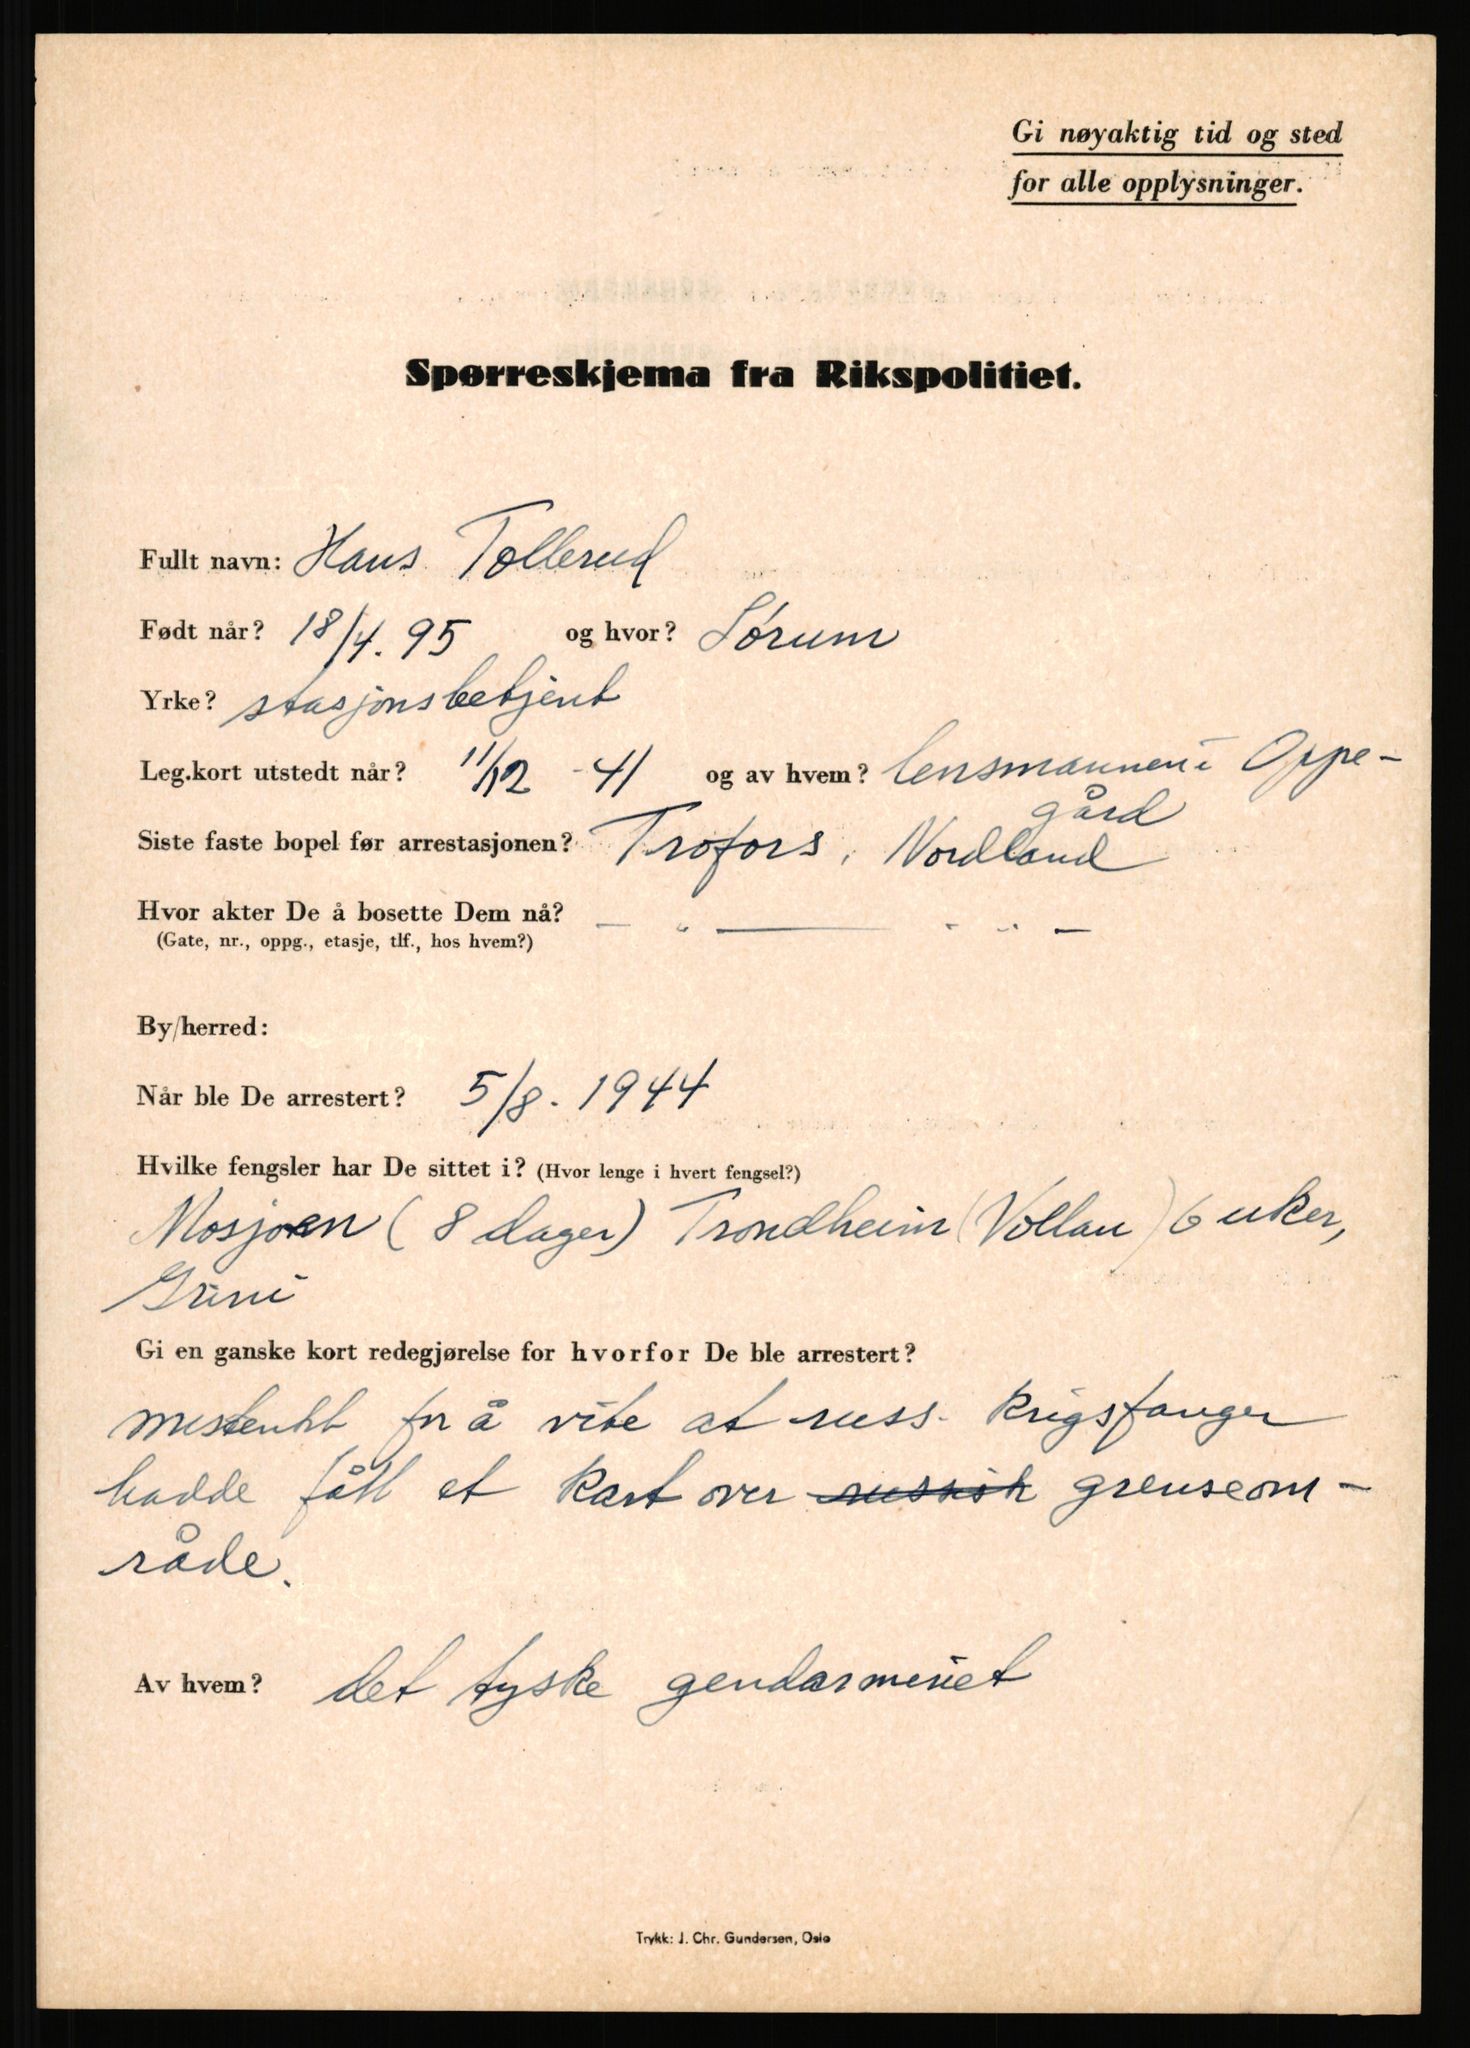 Gi nøyaktig tid og sted
for alle opplysninger.
Spørreskjema fra Rikspolitiet.
Fullt navn: Hans Tollerud
Født når? 18/4. 95 og hvor? Sørum
Yrke? stasjonsbetjent
Leg.kort utstedt når? 11/12 - 41 og av hvem? lensmannen i Oppe-
gård
Siste faste bopel før arrestasjonen? Trofors, Nordland
Hvor akter De å bosette Dem nå? - " - - " -
(Gate, nr., oppg., etasje, tlf., hos hvem?)
By/herred:
Når ble De arrestert? 5/8. 1944
Hvilke fengsler har De sittet i? (Hvor lenge i hvert fengsel?)
Mosjøen (8 dager) Trondheim (Vollan) 6 uker,
Grini
Gi en ganske kort redegjørelse for hvorfor De ble arrestert?
mistenkt for å vite at russ. krigsfanger
hadde fått et kart over russisk grenseom-
råde.
Av hvem? det tyske gendarmeriet
Trykk: J. Chr. Gundersen, Oslo